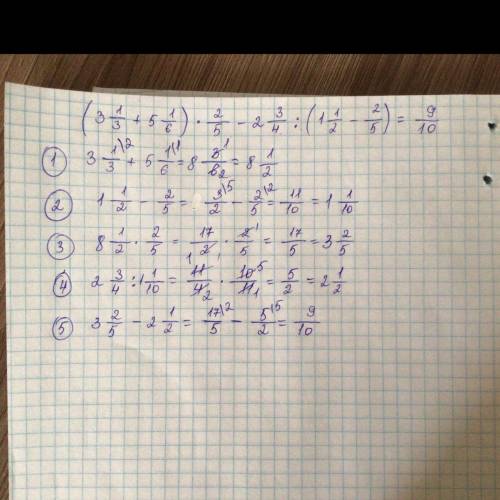 (3 1/3 + 5 1/6) · 2/5 − 2 3/4 : (1 1/2 − 2/5) = 9/10
① 3 1\2/3 + 5 1\1/6 = 8 3 1/6 2 = 8 1/2
② 1 1/2 − 2/5 = 3\5/2 − 2\2/5 = 11/10 = 1 1/10
③ 8 1/2 · 2/5 = 17/2 1 · 2 1/5 = 17/5 = 3 2/5
④ 2 3/4 : 1 1/10 = 11 1/4 2 · 10 5/11 1 = 5/2 = 2 1/2
⑤ 3 2/5 − 2 1/2 = 17\2/5 − 5\5/2 = 9/10